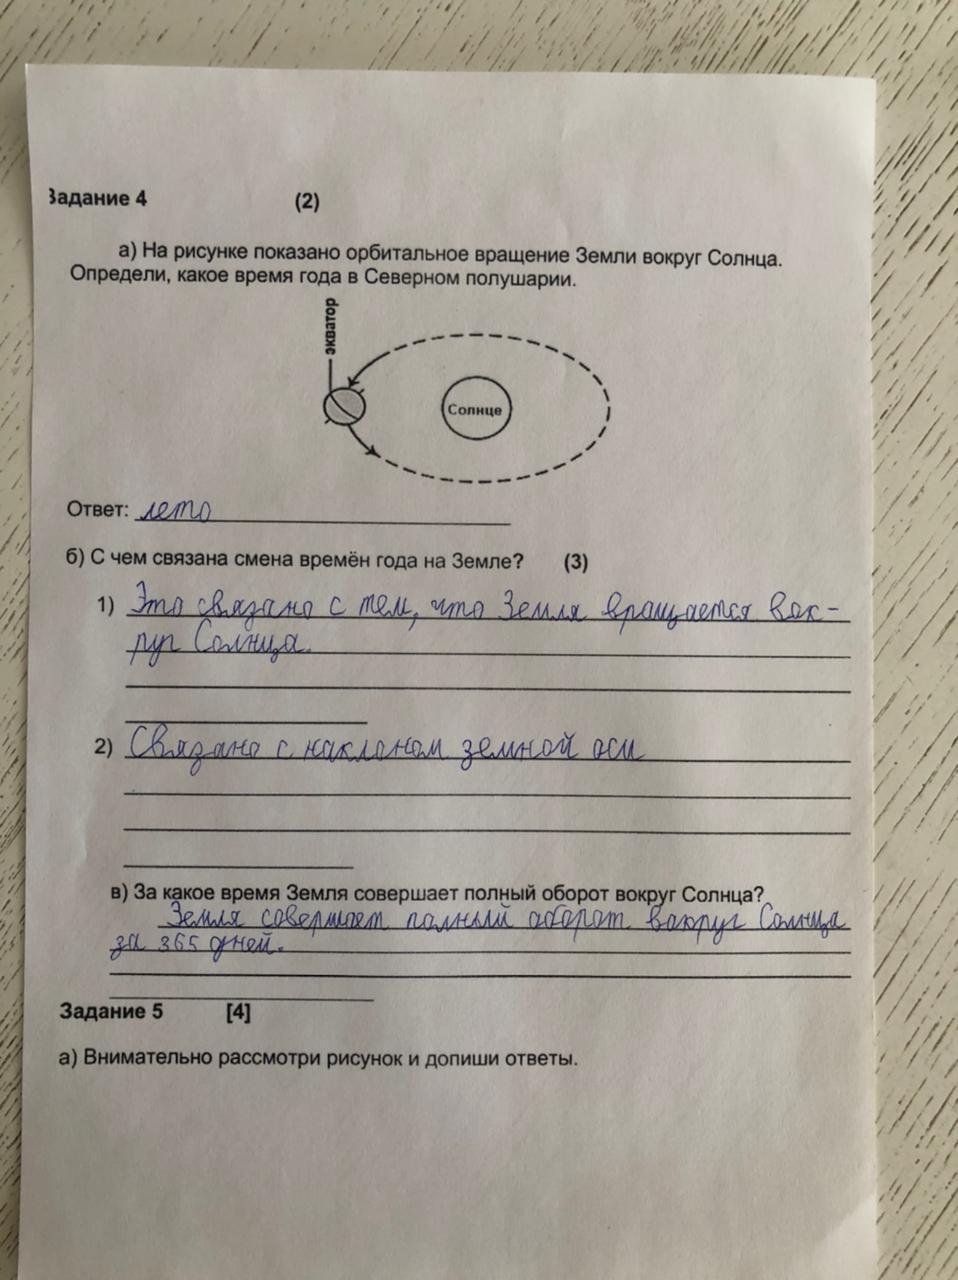 Задание 4 (2)
а) На рисунке показано орбитальное вращение Земли вокруг Солнца.
Определи, какое время года в Северном полушарии.
экватор
Солнце
Ответ: лето
б) С чем связана смена времён года на Земле? (3)
1) Это связано с тем, что Земля вращается вок-
руг Солнца.
2) Связано с наклоном земной оси
в) За какое время Земля совершает полный оборот вокруг Солнца?
Земля совершает полный оборот вокруг Солнца
за 365 дней.
Задание 5 [4]
а) Внимательно рассмотри рисунок и допиши ответы.